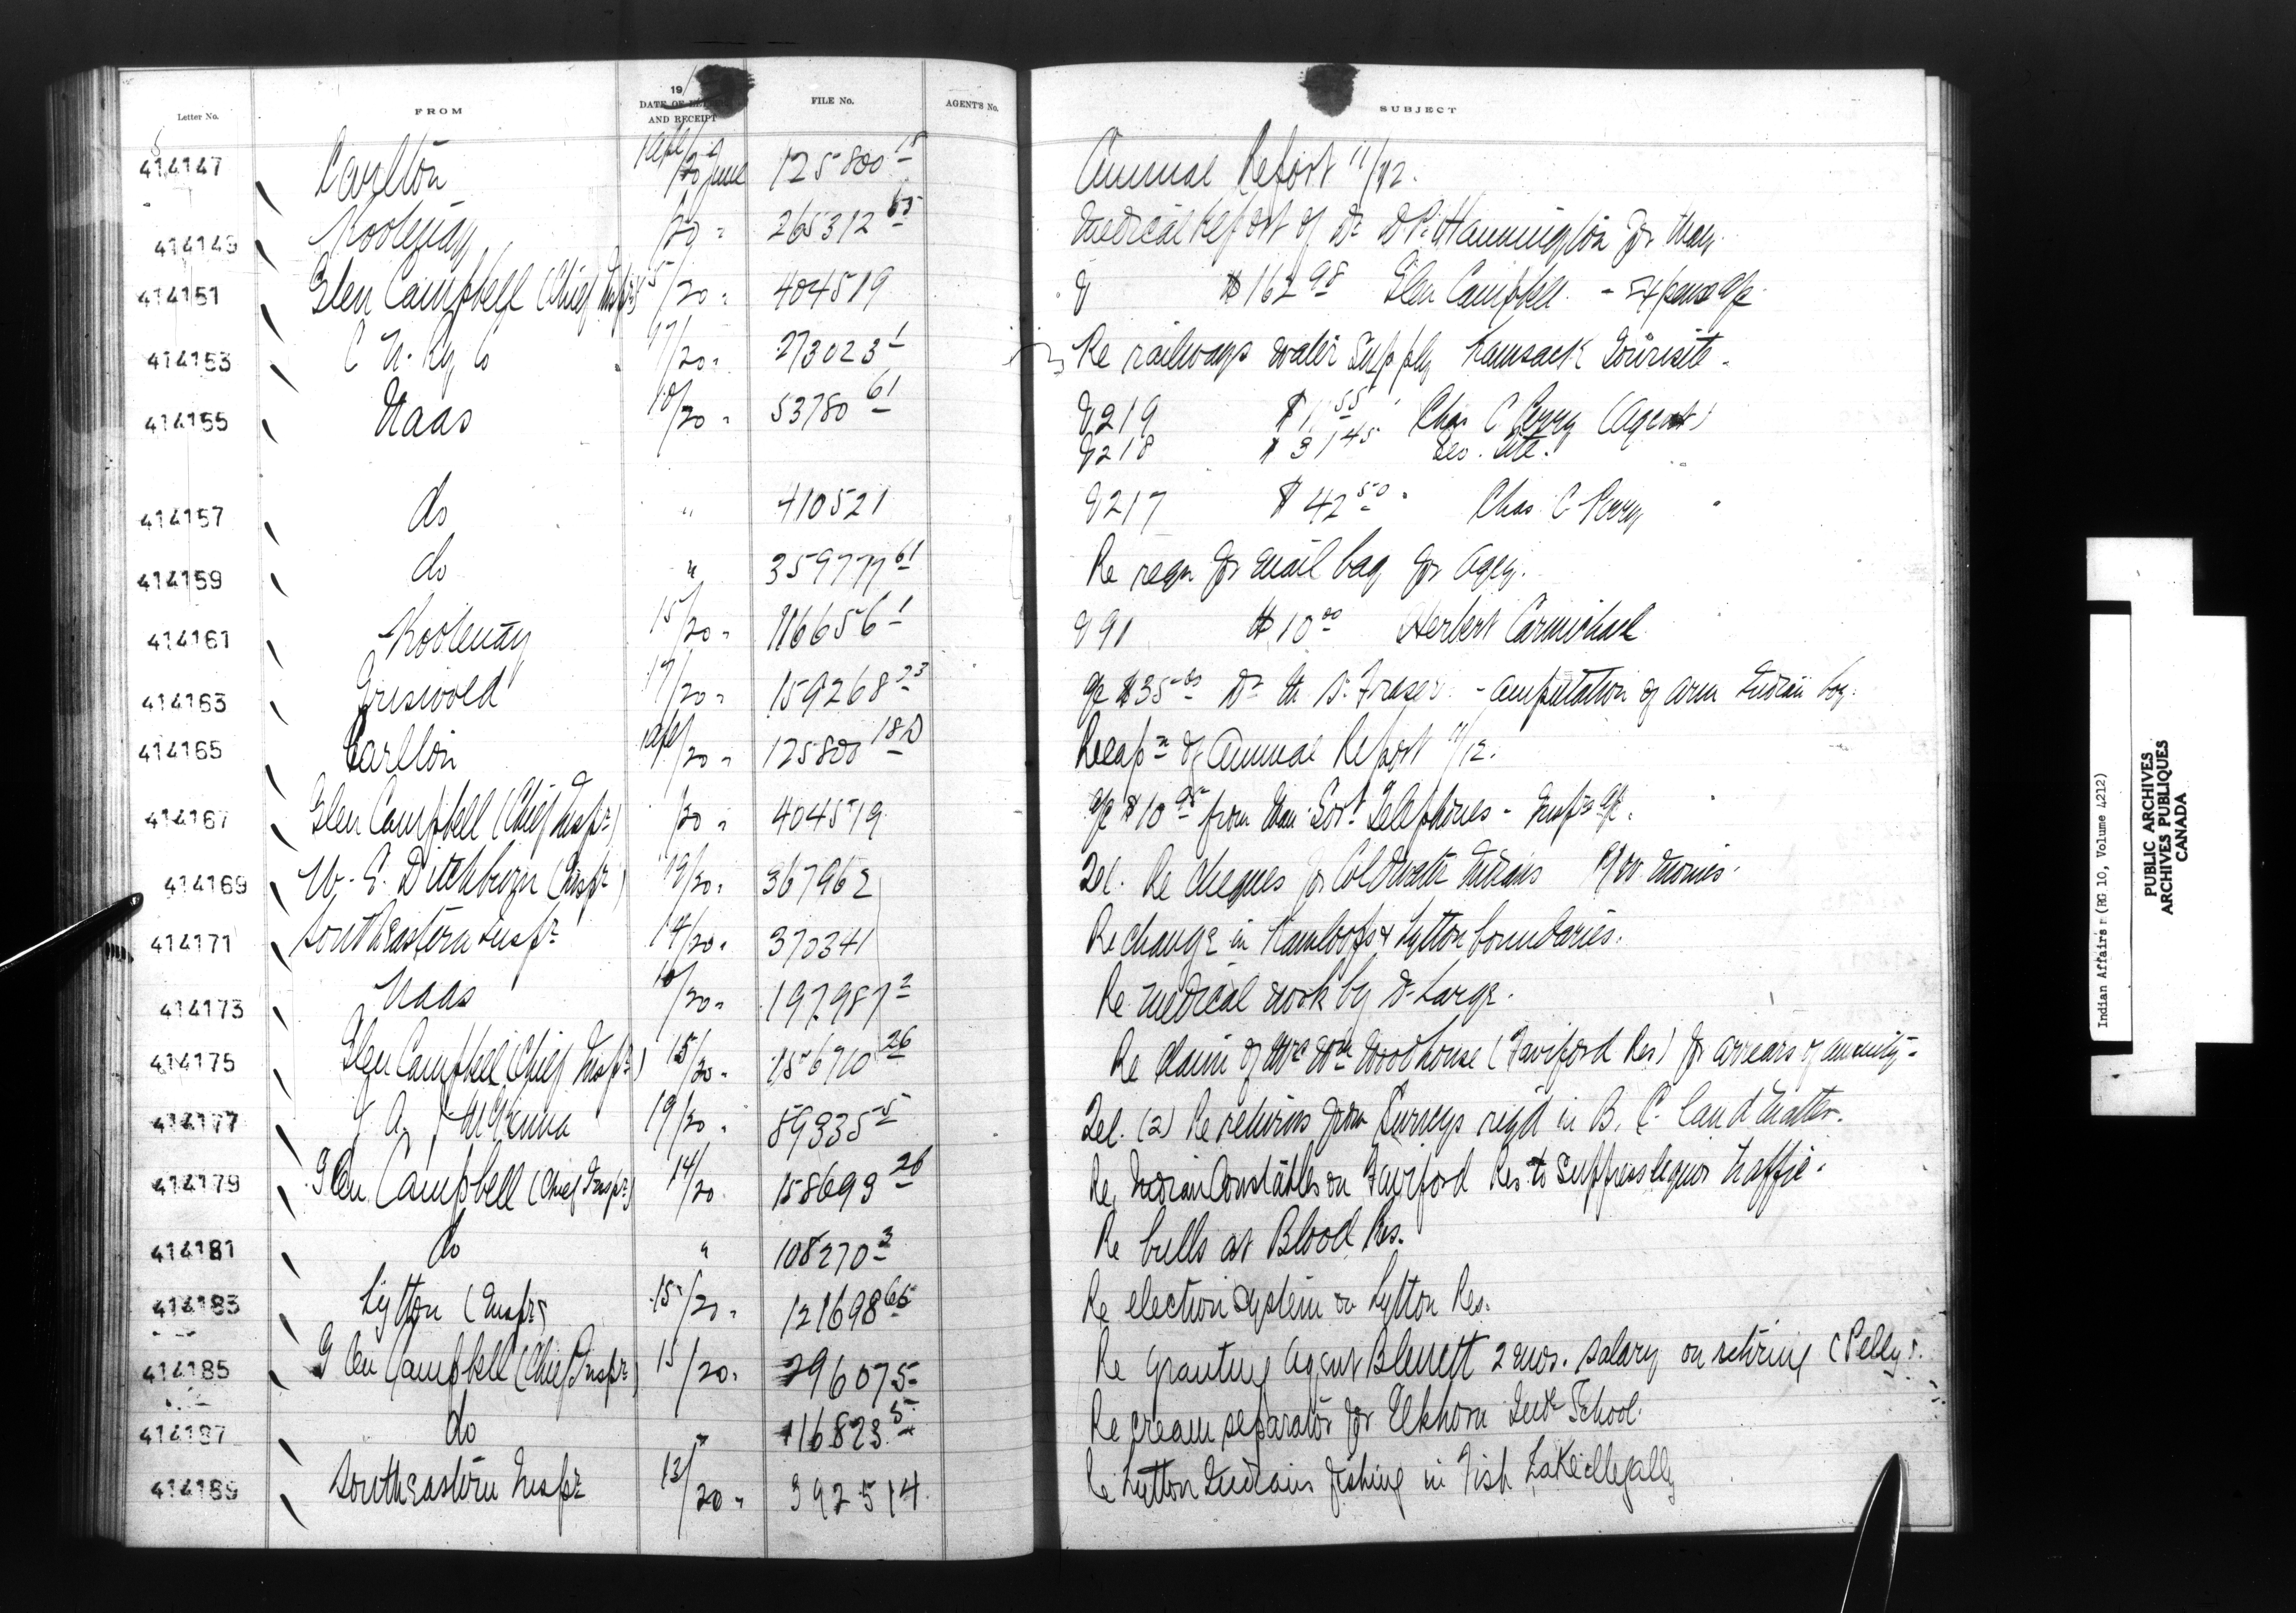 Letter No. FROM 19 DATE OF LETTER AND RECEIPT FILE No. AGENT'S No. SUBJECT
414147 Carlton 1 Apl/20 June 125800-18 Annual Report 11/12.
414149 Kootenay /20 " 265312-65 Medical Report of Dr D P. Hannington for May.
414151 Glen Campbell (Chief Inspr) 15/20 " 404519 V $162 98 Glen Campbell - Expense a/c
414153 C N. Ry Co 17/20 " 273023-1 Re railways water supply Kamsack Townsite.
414155 Naas 10/20 " 53780-61 V219 $1 55 Chas C Perry (Agent)
V218 $31 45 Geo.
414157 do " 410521 V217 $42 50 Chas C Perry
414159 do " 359777-61 Re reqn for mail bag for Agey.
414161 Kootenay 15/20 " 116656-1 V91 $10 00 Herbert Carmichael
414163 Griswold 17/20 " 159268-23 a/c $35 00 Dr Fraser - amputation of arm Indian boy.
414165 Carlton 1 Apl/20 " 125800-18D Recapn of Annual Report 11/12.
414167 Glen Campbell (Chief Inspr) /20 " 404519 a/c $10 from Man. Govt Telephones - Inspr's a/c.
414169 W. E. Ditchburn (Inspr) 19/20 " 367962 Tel. Re cheques for Coldwater Indians monies.
414171 Southeastern Inspr 14/20 " 370341 Re change in Kamloops & Lytton boundaries.
414173 Naas 10/20 " 197987-2 Re medical work by Dr Large.
414175 Glen Campbell (Chief Inspr) 15/20 " 156710-26 Re claim of Mrs Wm Woodhouse (Fairford Res) for arrears of annuity.
414177 J A. J McKenna 19/20 " 89335-5 Tel. (2) Re returns from Surveys req'd in B. C. land matter.
414179 Glen Campbell (Chief Inspr) 14/20 158693-26 Re Indian Constables on Fairford Res to suppress liquor traffic.
414181 do " 108270-3 Re bulls at Blood Res.
414183 Lytton (Inspr) 15/20 " 121698-65 Re election system on Lytton Res.
414185 Glen Campbell (Chief Inspr) 15/20 " 296075 Re granting Agent Blewett 2 mos. salary on retiring (Pelly).
414187 do " 116823-5 Re cream separator for Elkhorn Indl School.
414189 Southeastern Inspr 13/20 " 392514 Re Lytton Indians fishing in Fish Lake illegally
Indian Affairs (RG 10, Volume 4212)
PUBLIC ARCHIVES
ARCHIVES PUBLIQUES
CANADA